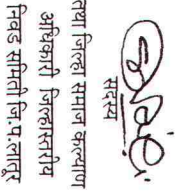 सदस्य
तथा जिल्हा समाज कल्याण
अधिकारी जिल्हास्तरीय
निवड समिती जि.प.लातूर